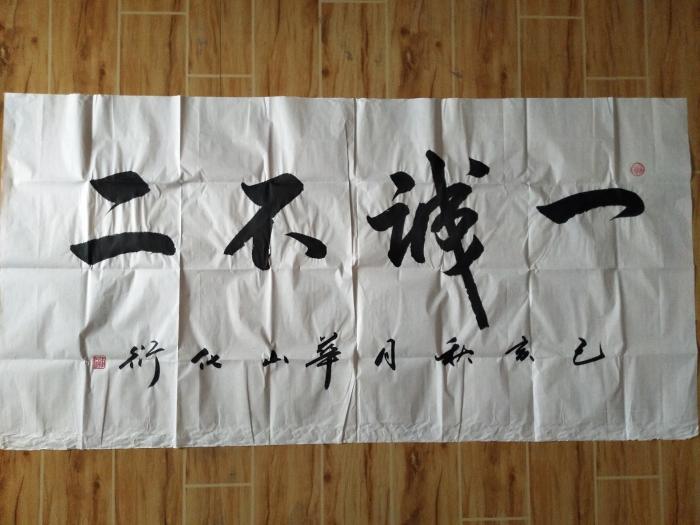 一誠不二
己亥秋月華山化衍